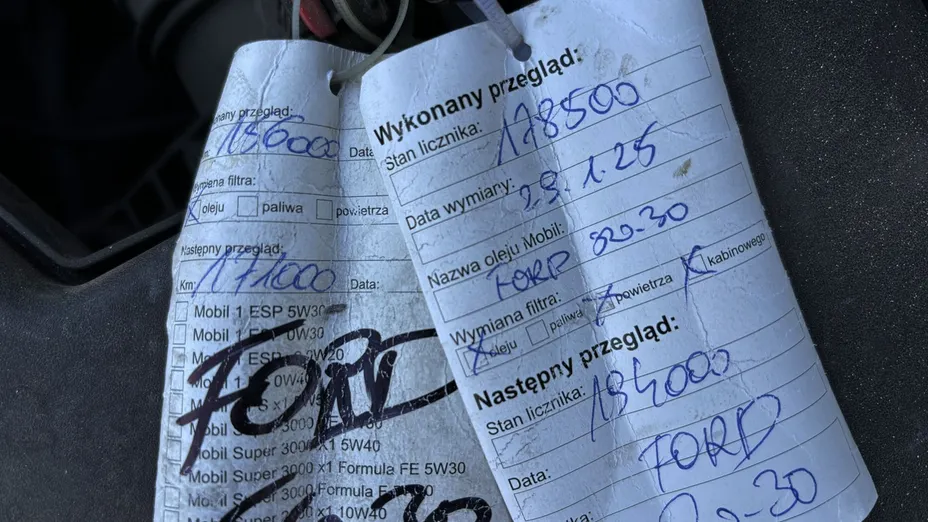 nany przegląd:
156000 Data
ymiana filtra:
x oleju paliwa powietrza
Następny przegląd:
Km: 171000 Data:
Mobil 1 ESP 5W30
Mobil 1 0W30
Mobil 1 ESP 0W20
Mobil 1 0W40
FORD
Mobil Super 3000 x1 5W40
Mobil Super 3000 x1 Formula FE 5W30
Mobil Super 3000 Formula
x1 10W40
30
Wykonany przegląd:
Stan licznika: 178500
Data wymiany: 29.1.25
Nazwa oleju Mobil:
FORD 020-30
Wymiana filtra:
x oleju paliwa x powietrza x kabinowego
Następny przegląd:
Stan licznika: 194000
Data: FORD
-30